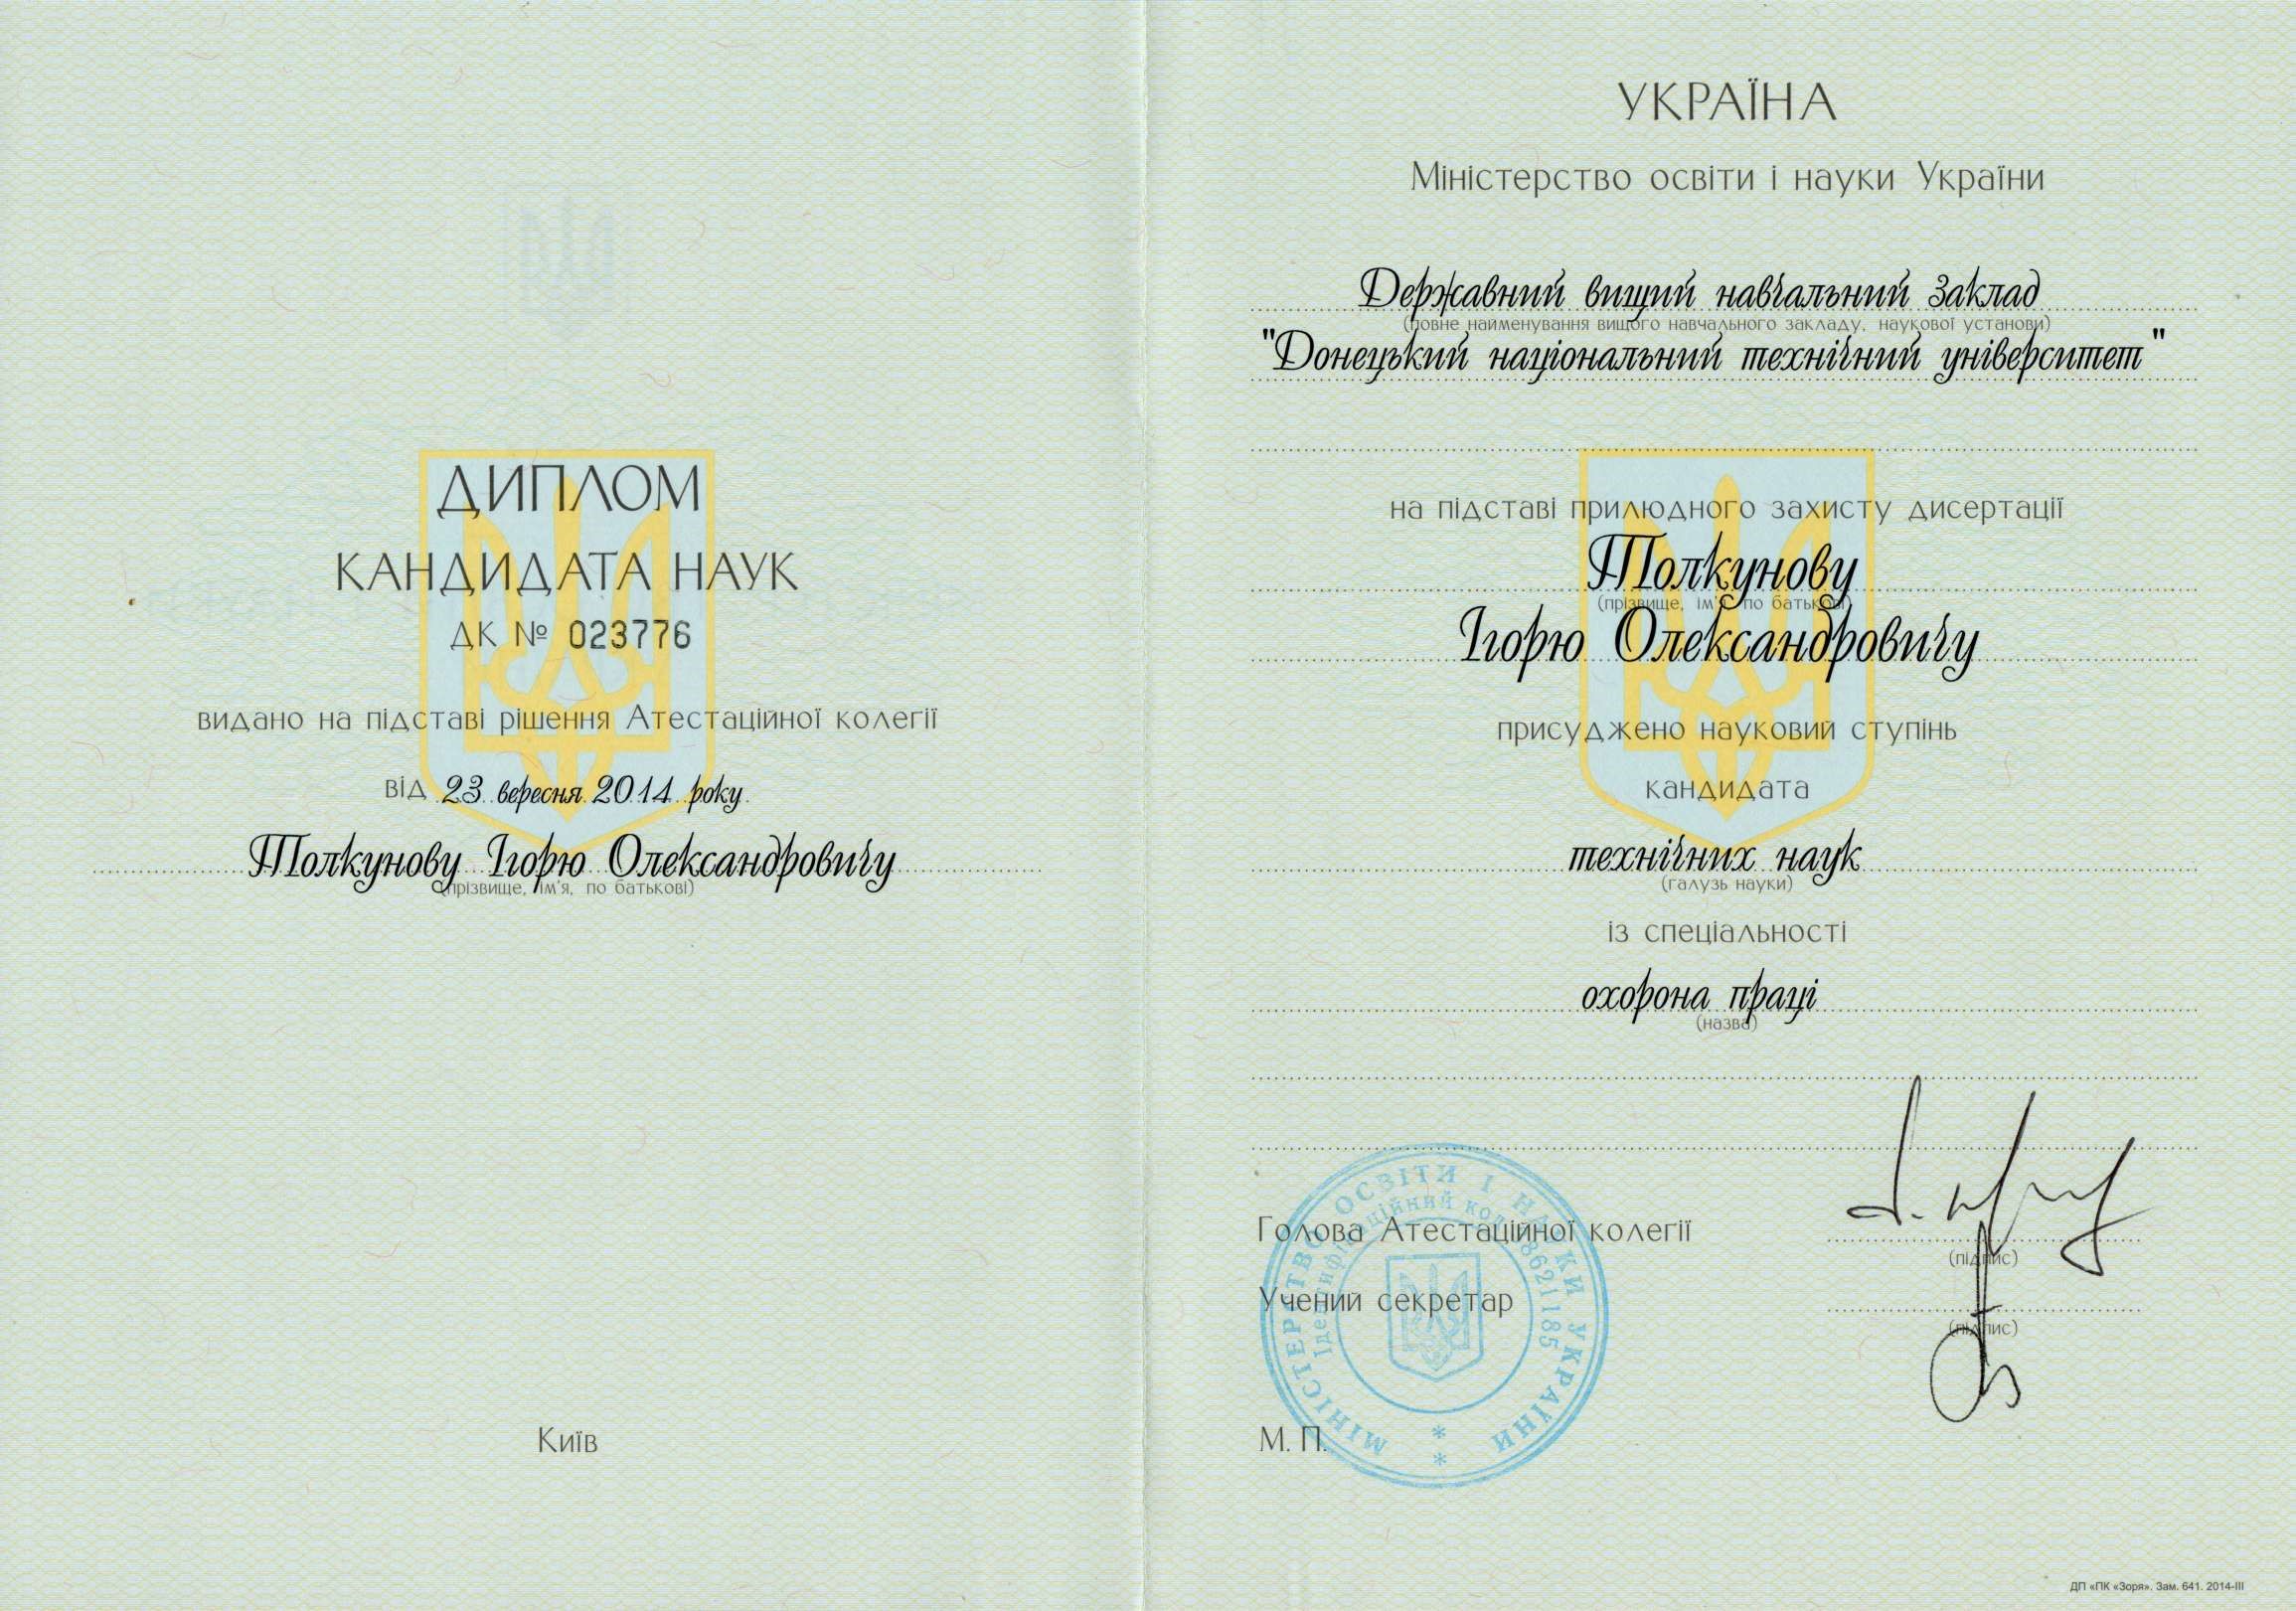 ДИПЛОМ
КАНДИДАТА НАУК
ДК № 023776
видано на підставі рішення Атестаційної колегії
від 23 вересня 2014 року
Толкунову Ігорю Олександровичу
(прізвище, ім'я, по батькові)
Київ
УКРАЇНА
Міністерство освіти і науки України
Державний вищий навчальний заклад
(повне найменування вищого навчального закладу, наукової установи)
"Донецький національний технічний університет"
на підставі прилюдного захисту дисертації
Толкунову
(прізвище, ім'я, по батькові)
Ігорю Олександровичу
присуджено науковий ступінь
кандидата
технічних наук
(галузь науки)
із спеціальності
охорона праці
(назва)
Голова Атестаційної колегії
(підпис)
Учений секретар
(підпис)
М. П.
МІНІСТЕРСТВО ОСВІТИ І НАУКИ УКРАЇНИ
Ідентифікаційний код 38621185
* *
ДП «ПК «Зоря». Зам. 641. 2014-III